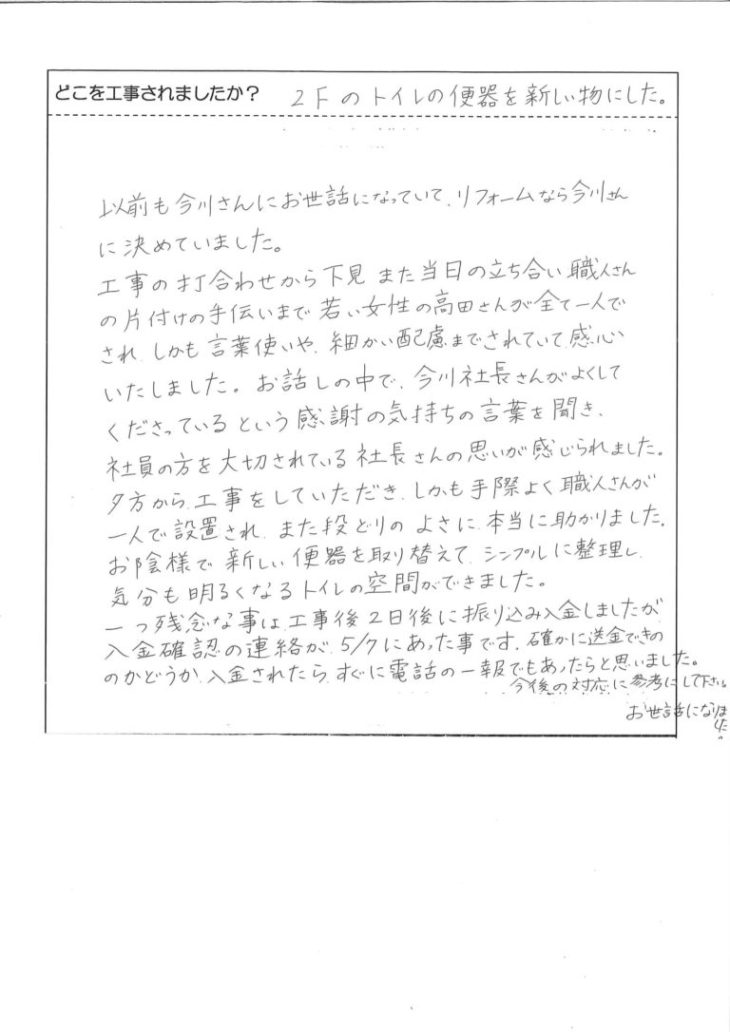 どこを工事されましたか？ 2Fのトイレの便器を新しい物にした。
以前も今川さんにお世話になっていて、リフォームなら今川さん
に決めていました。
工事の打合わせから下見 また当日の立ち合い 職人さん
の片付けの手伝いまで 若い女性の高田さんが全て一人で
され、しかも言葉使いや、細かい配慮までされていて、感心
いたしました。お話しの中で、今川社長さんがよくして
くださっているという感謝の気持ちの言葉を聞き、
社員の方を大切されている社長さんの思いが感じられました。
夕方から、工事をしていただき、しかも手際よく職人さんが
一人で設置され、また段どりのよさに、本当に助かりました。
お陰様で新しい便器を取り替えて、シンプルに整理し、
気分も明るくなるトイレの空間ができました。
一つ残念な事は、工事後2日後に振り込み入金しましたが
入金確認の連絡が、5/7にあった事です。確かに送金できの
のかどうか、入金されたら、すぐに電話の一報でもあったらと思いました。
今後の対応に参考にして下さい
お世話になりま
した。